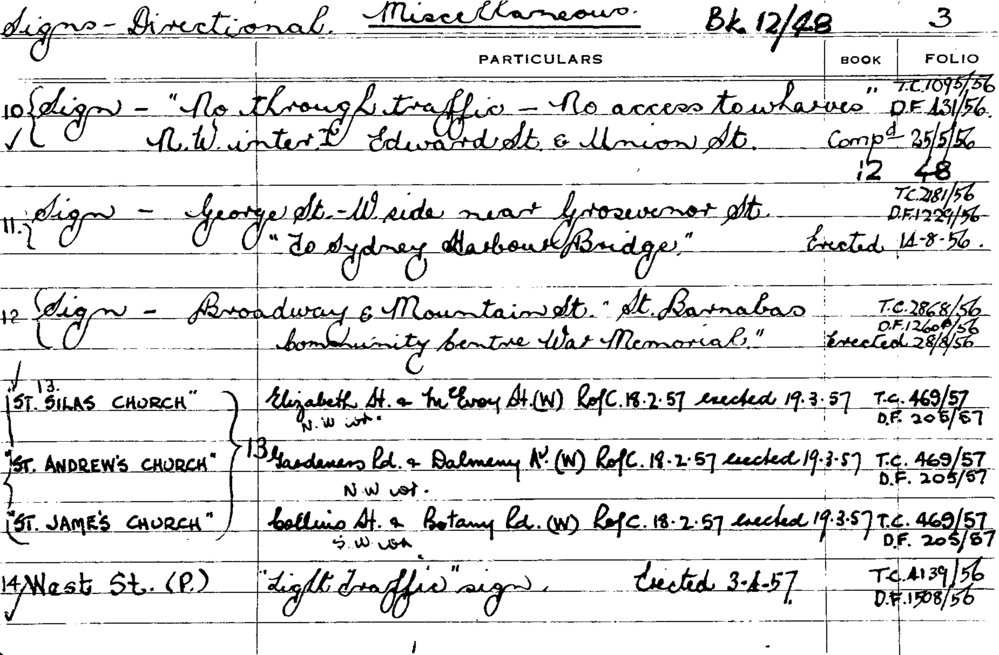 Signs - Directional. Miscellaneous. Bk. 12/48 3
PARTICULARS BOOK FOLIO
T.C. 1095/56
10 Sign - "No through traffic - No access to wharves" D.F. 431/56.
✓ N.W. inter. Edward St. & Union St. Compd 25/5/56
12 48
T.C. 2181/56
11. Sign - George St. - W side near Grosevenor St. D.F. 1229/56
"To Sydney Harbour Bridge." Erected 14-8-56.
12 Sign - Broadway & Mountain St. "St. Barnabas T.C. 2868/56
D.F. 1260/56
Community Centre War Memorial." Erected 28/8/56
✓ 13.
"ST. SILAS CHURCH" Elizabeth St. & McEvoy St. (W) R of C. 18.2.57 erected 19.3.57 T.C. 469/57
N.W cor. D.F. 205/57
"ST. ANDREW'S CHURCH" 13 Gardeners Rd. & Dalmeny Av. (W) R of C. 18.2.57 erected 19.3.57 T.C. 469/57
N.W cor. D.F. 205/57
"ST. JAME'S CHURCH" Collins St. & Botany Rd. (W) R of C. 18.2.57 erected 19.3.57 T.C. 469/57
S.W cor. D.F. 205/57
14 West St. (P.) "Light Traffic" sign. Erected 3-4-57. T.C. 4139/56
✓ D.F. 1508/56